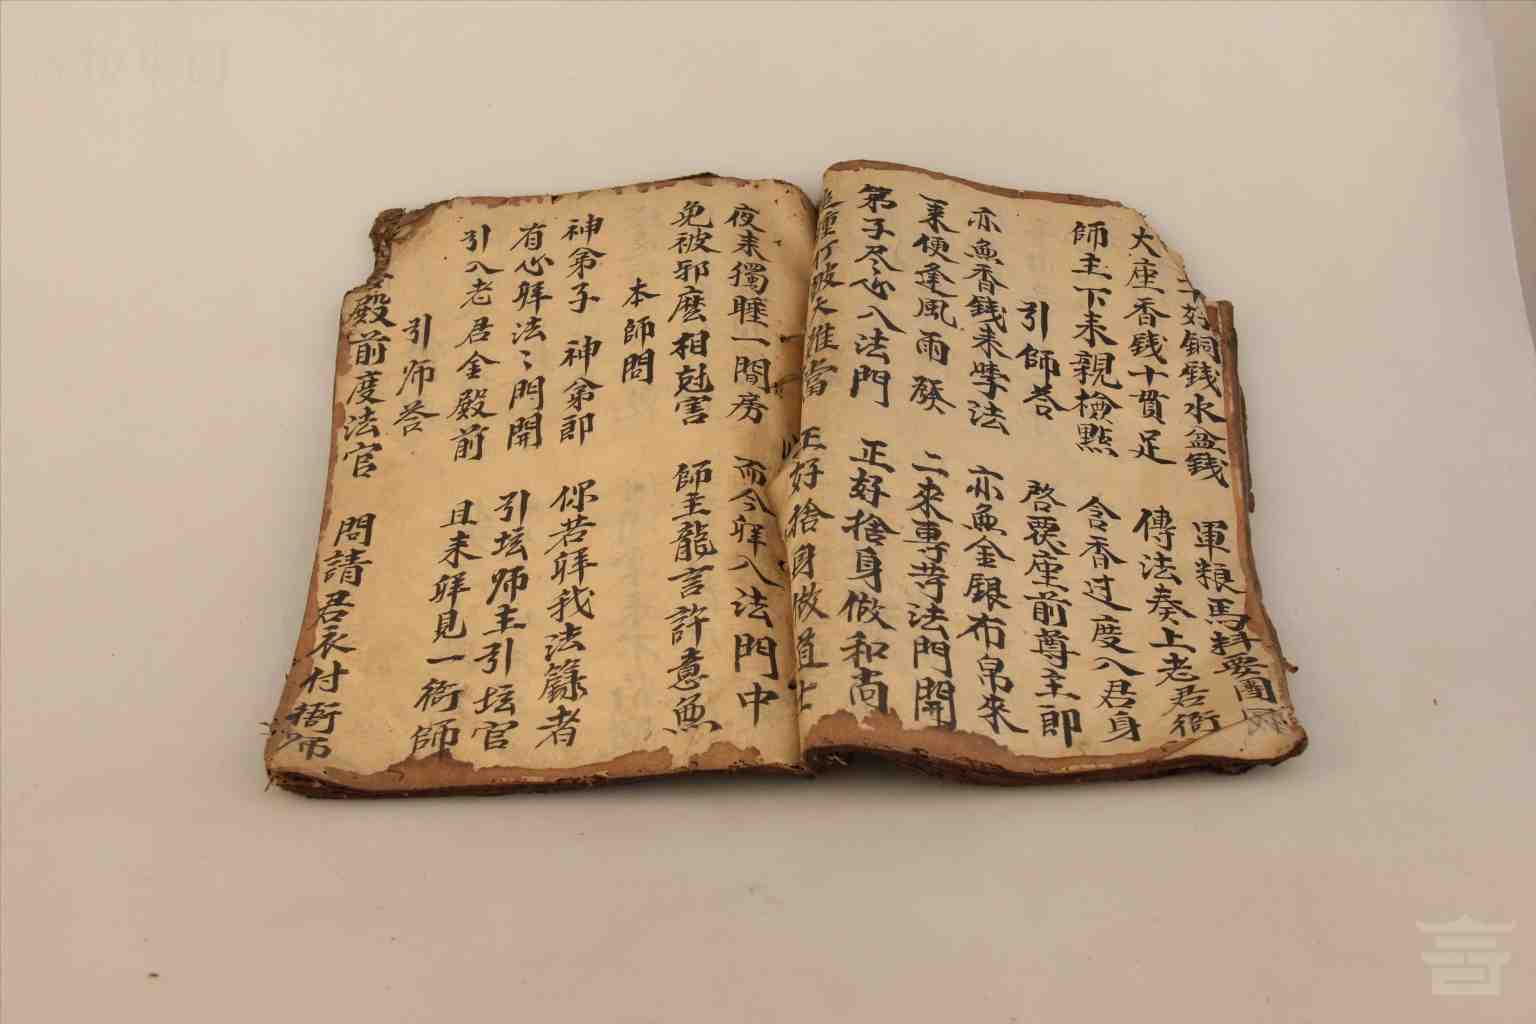 好銅錢水盆錢　軍粮馬料要團
大座香錢十貫足　傳法奏上老君衙
師主下来親檢點　含香过度入君身
引師荅　啓覂座前尊主郎
亦無香錢来學法　亦無金銀布帛来
来便逢風雨發　二來專等法門開
第子尽心入法門　正好捨身做和尚
正好捨身做道士
夜来獨睡一間房　而今拜入法門中
免被邪麽相尅害　師主龍言許意無
本師問
神弟子　神弟郎　你若拜我法籙者
有心拜法〻門開　引坛师主引坛官
引入老君金殿前　且来拜見一衙師
引师荅
殿前度法官　問請君衣付衙师